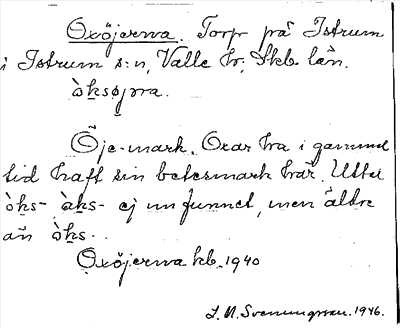 Oxöjerna. Torp på Istrum
i Istrum s:n, Valle hr, Skb. län.
òk̲sø̨jɳa.
Öje-mark. Oxar ha i gammal
tid haft sin betesmark här. Uttal
òk̲s- àk̲s- ej unfunnet, men äldre
än òk̲s-.
Oxöjerna kb. 1940
L. N. Svenungsson. 1946.